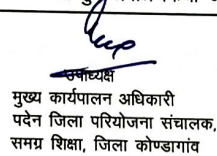 उपाध्यक्ष
मुख्य कार्यपालन अधिकारी
पदेन जिला परियोजना संचालक,
समग्र शिक्षा, जिला कोण्डागांव